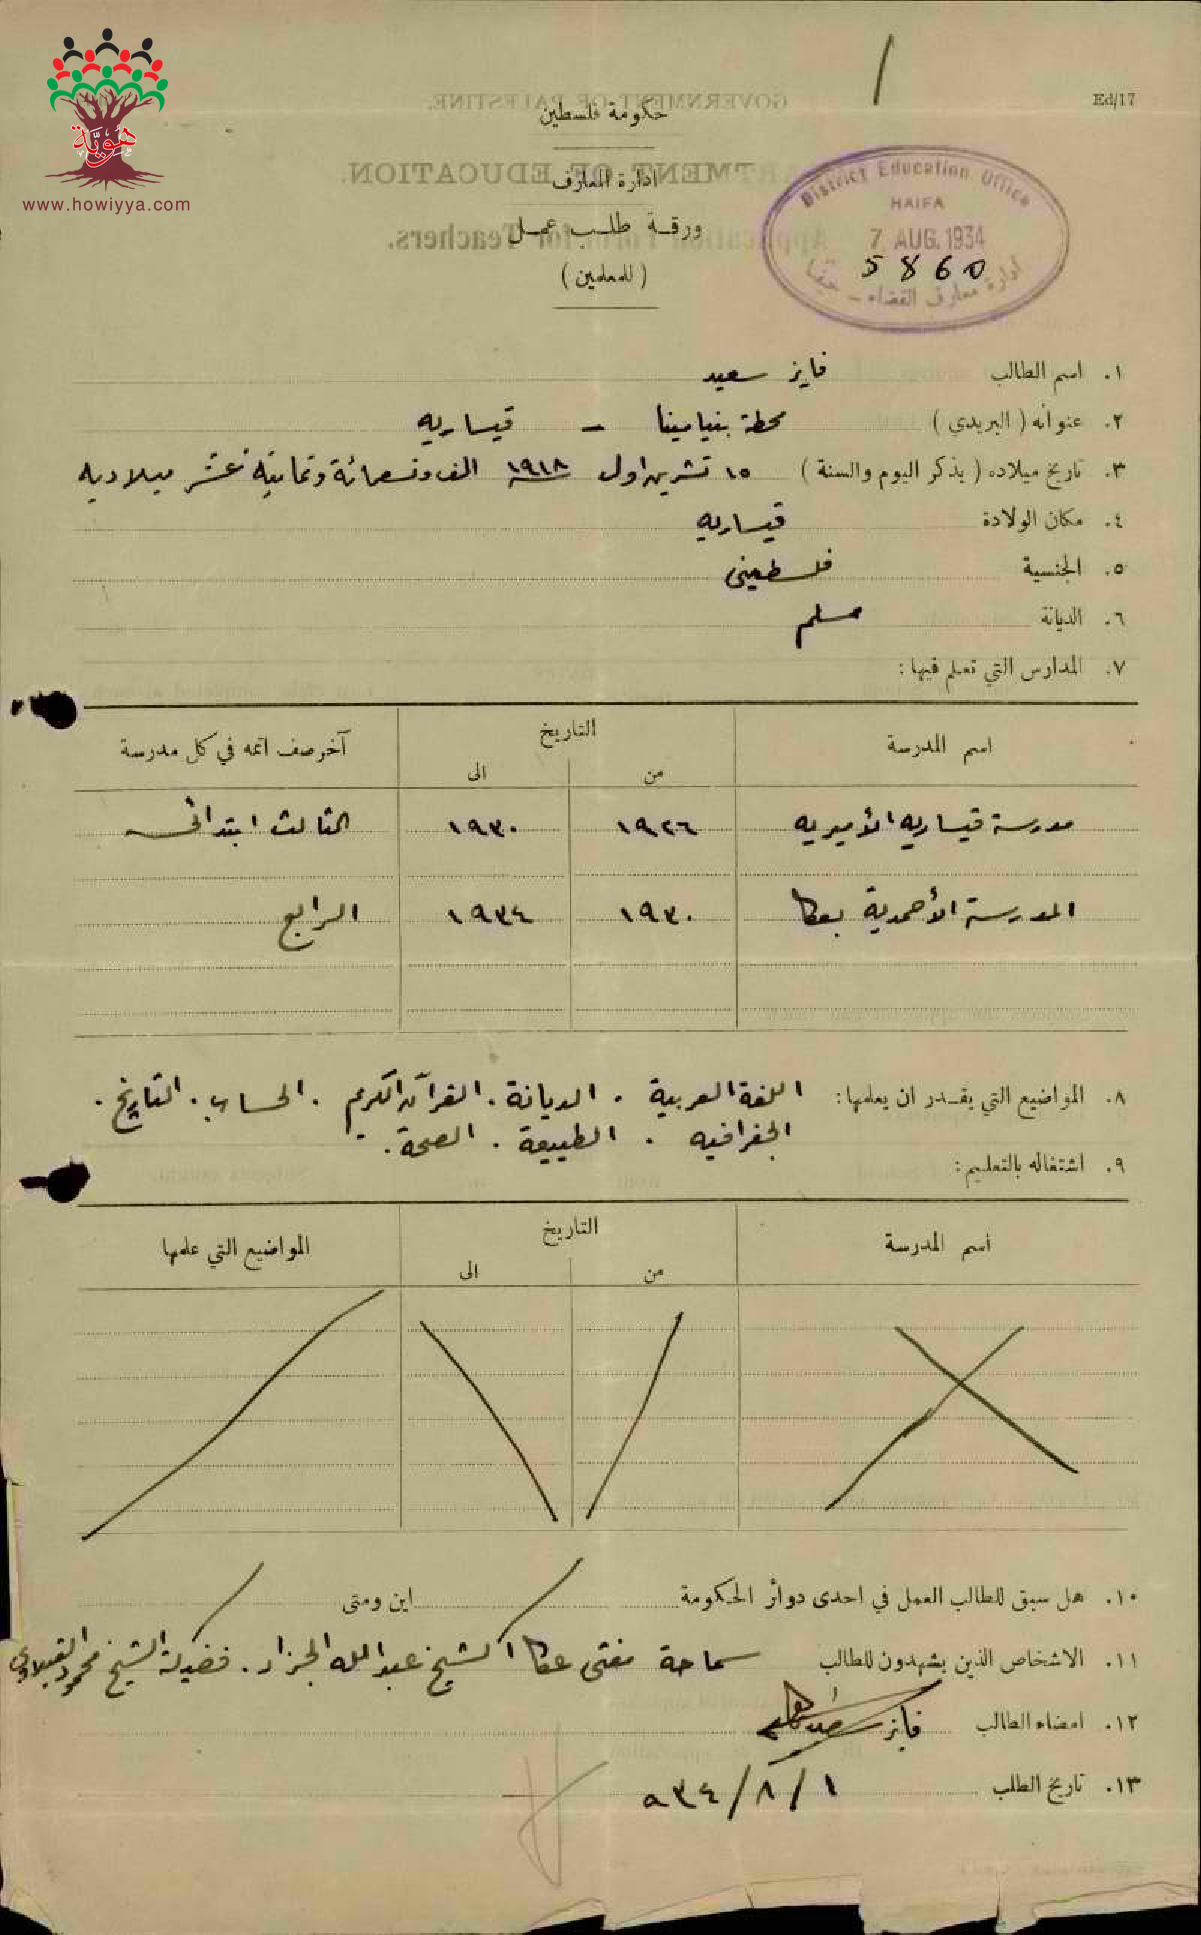 هوية
www.howiyya.com
Ed/17
GOVERNMENT OF PALESTINE.
حكومة فلسطين
DEPARTMENT OF EDUCATION.
ادارة المعارف
Application Form for Teachers.
ورقة طلب عمل
(للمعلمين)
District Education Office
HAIFA
7 AUG. 1934
5860
ادارة معارف القضاء – حيفا
١. اسم الطالب فايز سعيد
٢. عنوانه (البريدي) محطة بنيامينا – قيساريه
٣. تاريخ ميلاده (يذكر اليوم والسنة) ١٥ تشرين اول ١٩١٨ الف وتسعمائة وثمانية عشر ميلاديه
٤. مكان الولادة قيساريه
٥. الجنسية فلسطيني
٦. الديانة مسلم
٧. المدارس التي تعلم فيها:
اسم المدرسة التاريخ آخر صف اتمه في كل مدرسة
من الى
مدرسة قيساريه الأميريه ١٩٢٦ ١٩٣٠ الثالث ابتدائي
المدرسة الأحمدية بعكا ١٩٣٠ ١٩٣٤ الرابع
٨. المواضيع التي يقدر ان يعلمها: اللغة العربية . الديانة . القرآن الكريم . الحساب . التاريخ .
الجغرافيه . الطبيعة . الصحة .
٩. اشتغاله بالتعليم:
اسم المدرسة التاريخ المواضيع التي علمها
من الى
١٠. هل سبق للطالب العمل في احدى دوائر الحكومة اين ومتى
١١. الاشخاص الذين يشهدون للطالب سماحة مفتي عكا الشيخ عبدالله الجزار . فضيلة الشيخ محمود
١٢. امضاء الطالب فايز سعيد
١٣. تاريخ الطلب ١/٨/٩٣٤